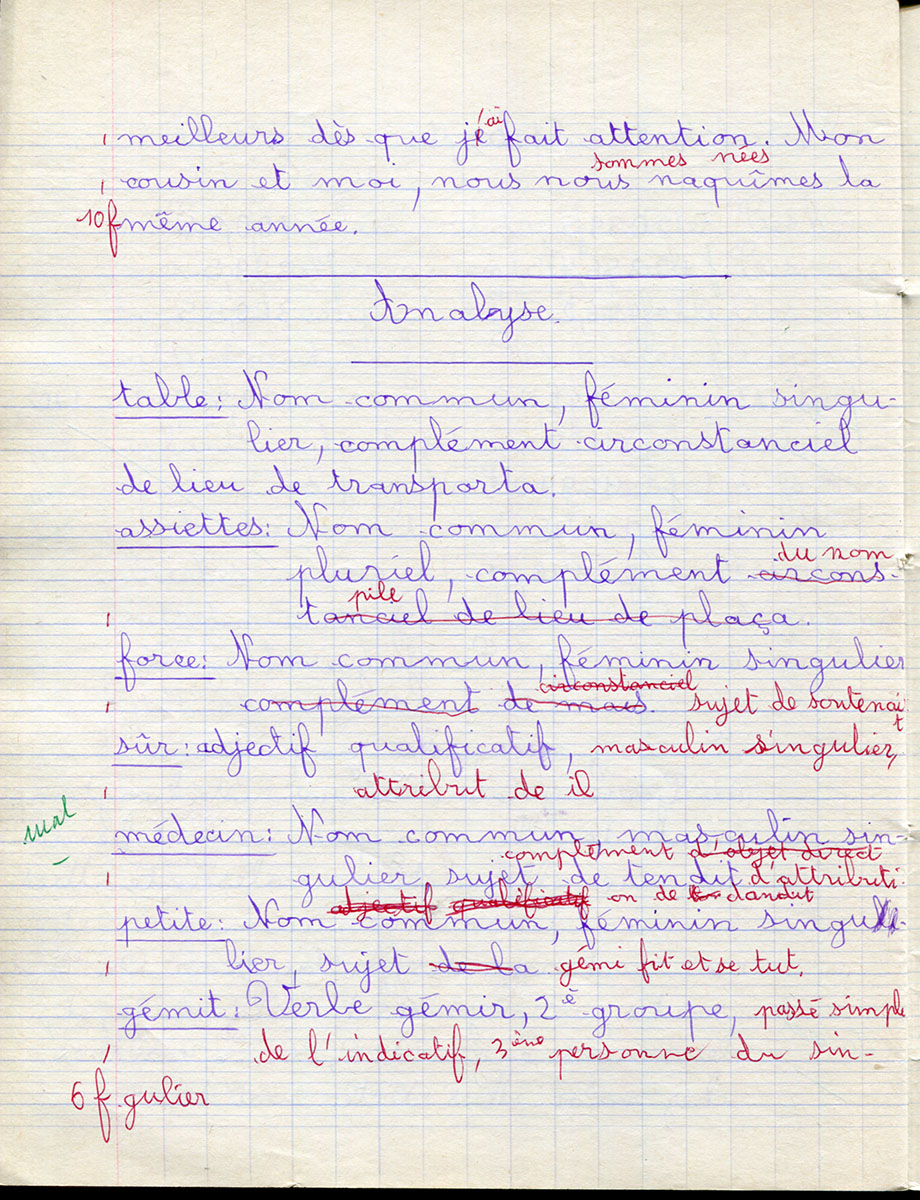 meilleurs dès que j'ai fait attention. Mon
sommes nées
cousin et moi, nous nous naquîmes la
10f même année.
Analyse.
table: Nom commun, féminin singu-
lier, complément circonstanciel
de lieu de transporta.
assiettes: Nom commun, féminin
du nom
pluriel, complément circons-
pile
tanciel de lieu de plaça.
force: Nom commun, féminin singulier
circonstanciel
complément de mais. sujet de soutenait
sûr: adjectif qualificatif, masculin singulier,
attribut de il
mal
médecin: Nom commun, masculin sin-
complément d'objet direct
gulier, sujet de tendit d'attributi
adjectif qualificatif on de
petite: Nom commun, féminin singu-
lier, sujet de la gémi fit et se tut.
gémit: Verbe gémir, 2è groupe, passé simple
de l'indicatif, 3ème personne du sin-
6 f gulier